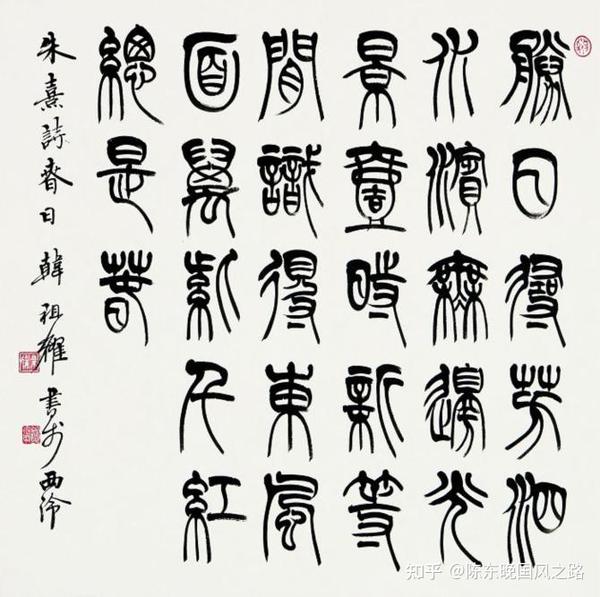 勝日尋芳泗
水濱無邊光
景壹時新等
閒識得東風
面萬紫千紅
總是春
朱熹詩春日 韓祖耀 書於西泠
知乎 @陈东晚国风之路